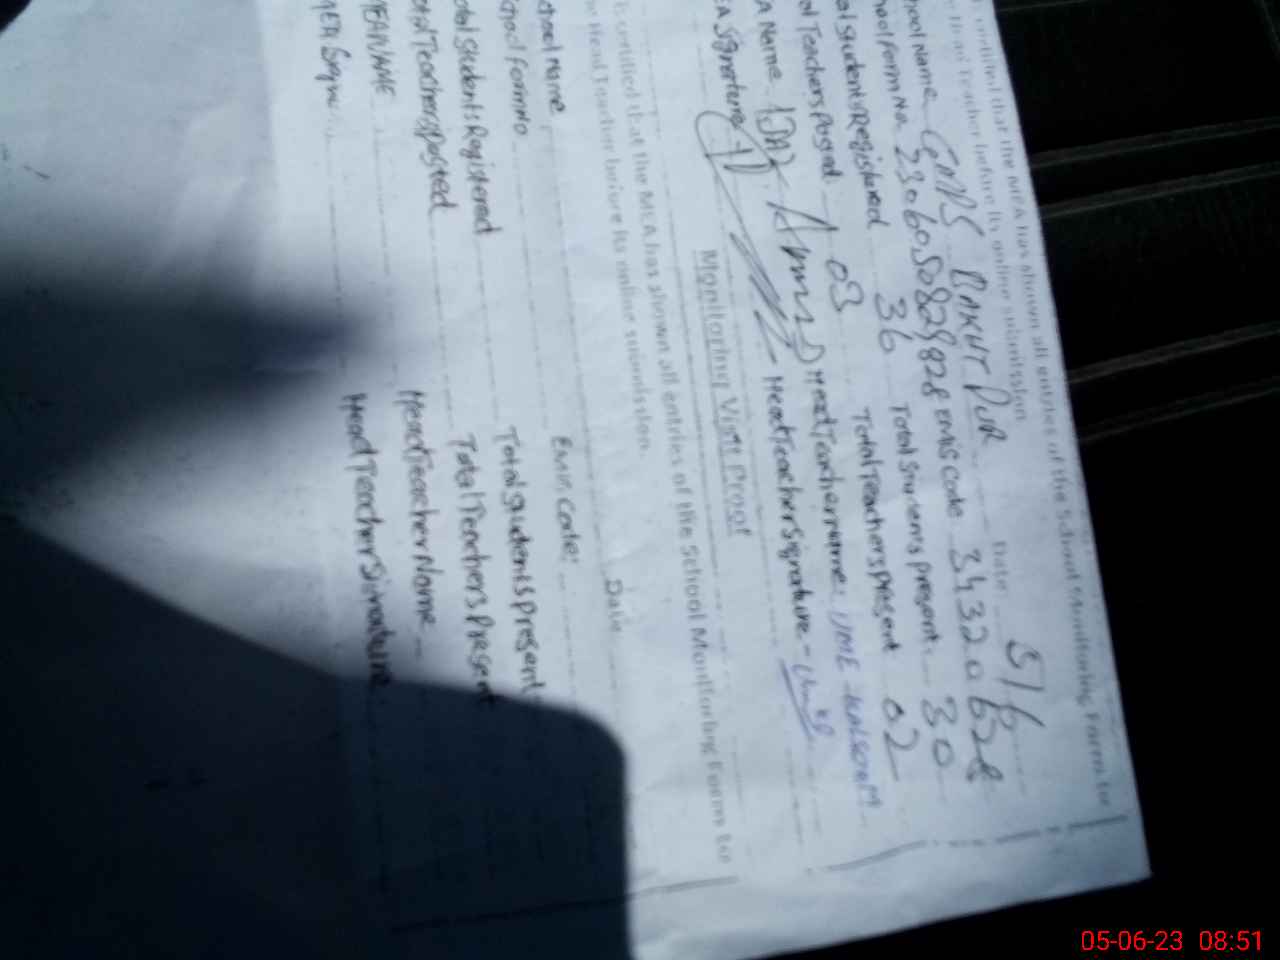 certified that the MEA has shown all entries of the School Monitoring Form to
Head Teacher before its online submission Date: 5/6
hool Name GMPS BAKUT PUR EMIS Code 34320628
hool Form No. 2306050829828 Total Students present. 30
al students Registered 36 Total Teachers present 02
al Teachers Posted. 03 Head Teacher name: UME KALSOOM
A Name. Head Teacher Signature-
A Signature
Monitoring Visit Proof
is certified that the MEA has shown all entries of the School Monitoring Form to
Head Teacher before its online submission. Date
chool Name Emis Code:
chool Form No Total students present
otal students Registered Total Teachers Present
otal Teachers posted Head Teacher Name
MEA NAME Head Teacher Signature
MEA Signa
05-06-23 08:51